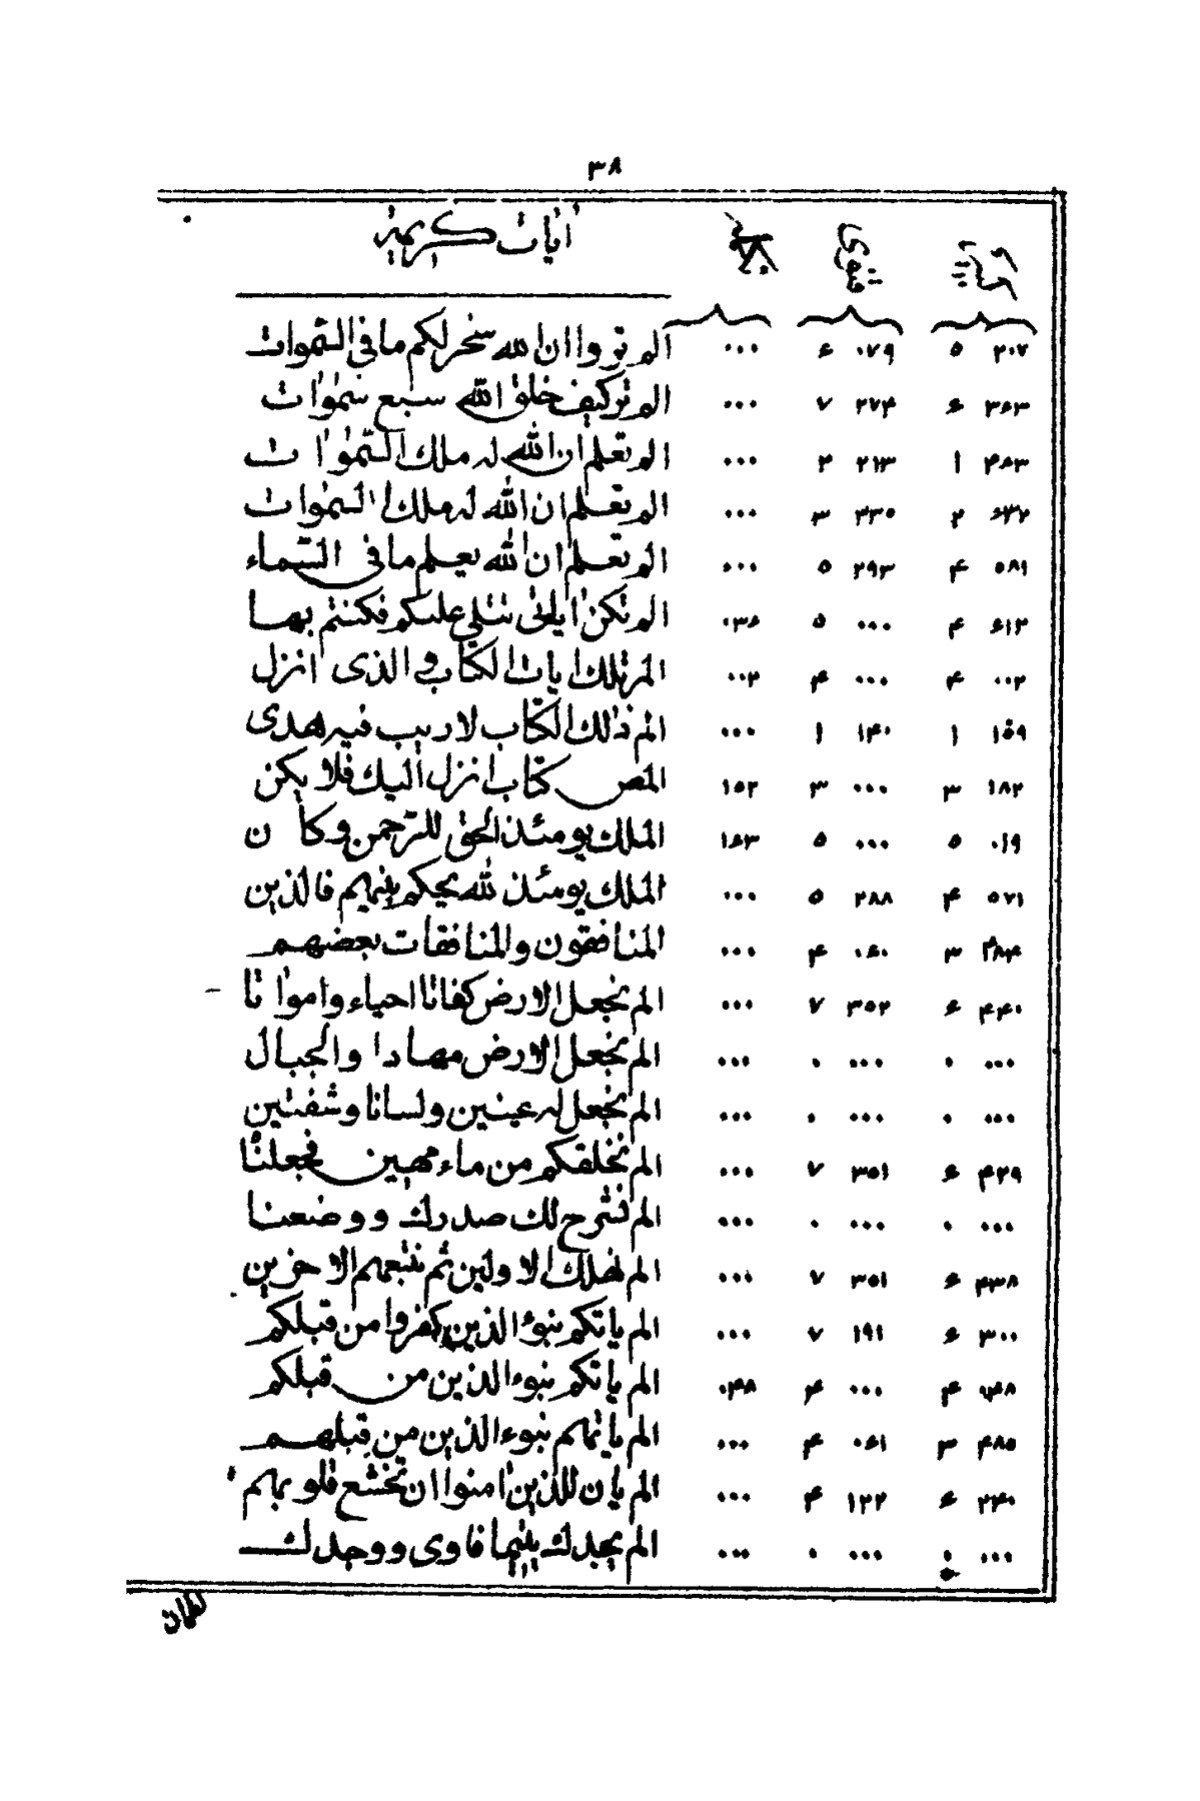 ٣٨
اٰيات كريمه
٢٠٧ ٥ ٠٧٩ ۶ ٠٠٠ الم تروا ان الله سخر لكم ما فى السموات
٣۶٣ ۶ ٢٧۴ ٧ ٠٠٠ الم تر كيف خلق الله سبع سمٰوٰات
۴۶٣ ١ ٢١٣ ٢ ٠٠٠ الم تعلم ان الله له ملك السمٰوٰات
۶٣٢ ٢ ٣٣٥ ٣ ٠٠٠ الم تعلم ان الله له ملك السمٰوات
٥٨١ ۴ ٢٩٣ ٥ ٠٠٠ الم تعلم ان الله يعلم ما فى السماء
۶١٢ ۴ ٠٠٠ ٥ ٠٣۶ الم تكن اٰياتى تتلى عليكم فكنتم بها
٠٠٢ ۴ ٠٠٠ ۴ ٠٠٢ المر تلك اٰيات الكتاب و الذى انزل
١٥٩ ١ ١۴٠ ١ ٠٠٠ الم ذلك الكتاب لا ريب فيه هدى
١٨٢ ٣ ٠٠٠ ٣ ١٥٢ المص كتاب انزل اليك فلا يكن
٠١٩ ٥ ٠٠٠ ٥ ١۶٣ الملك يومئذ الحق للرحمن و كان
٥٧١ ۴ ٢٨٨ ٥ ٠٠٠ الملك يومئذ لله يحكم بينهم فالذين
۴٨۴ ٣ ٠۶٠ ۴ ٠٠٠ المنافقون والمنافقات بعضهم
۴۴٠ ۶ ٣٥٢ ٧ ٠٠٠ الم نجعل الارض كفاتا احياء و امواتا
٠٠٠ ٠ ٠٠٠ ٠ ٠٠٠ الم نجعل الارض مهادا والجبال
٠٠٠ ٠ ٠٠٠ ٠ ٠٠٠ الم نجعل له عينين و لسانا و شفتين
۴٣٩ ۶ ٣٥١ ٧ ٠٠٠ الم نخلقكم من ماء مهين فجعلنا
٠٠٠ ٠ ٠٠٠ ٠ ٠٠٠ الم نشرح لك صدرك و وضعنا
۴٣٨ ۶ ٣٥١ ٧ ٠٠٠ الم نهلك الاولين ثم نتبعهم الاخرين
٣٠٠ ۶ ١٩١ ٧ ٠٠٠ الم ياتكم نبؤا الذين كفروا من قبلكم
٠۴٨ ۴ ٠٠٠ ۴ ٠۴٨ الم ياتكم نبوء الذين من قبلكم
۴٨٥ ٣ ٠۶١ ۴ ٠٠٠ الم ياتهم نبوء الذين من قبلهم
٢۴٠ ۶ ١٢٢ ۴ ٠٠٠ الم يان للذين اٰمنوا ان تخشع قلوبهم
٠٠٠ ٠ ٠٠٠ ٠ ٠٠٠ الم يجدك يتيما فاوى و وجدك